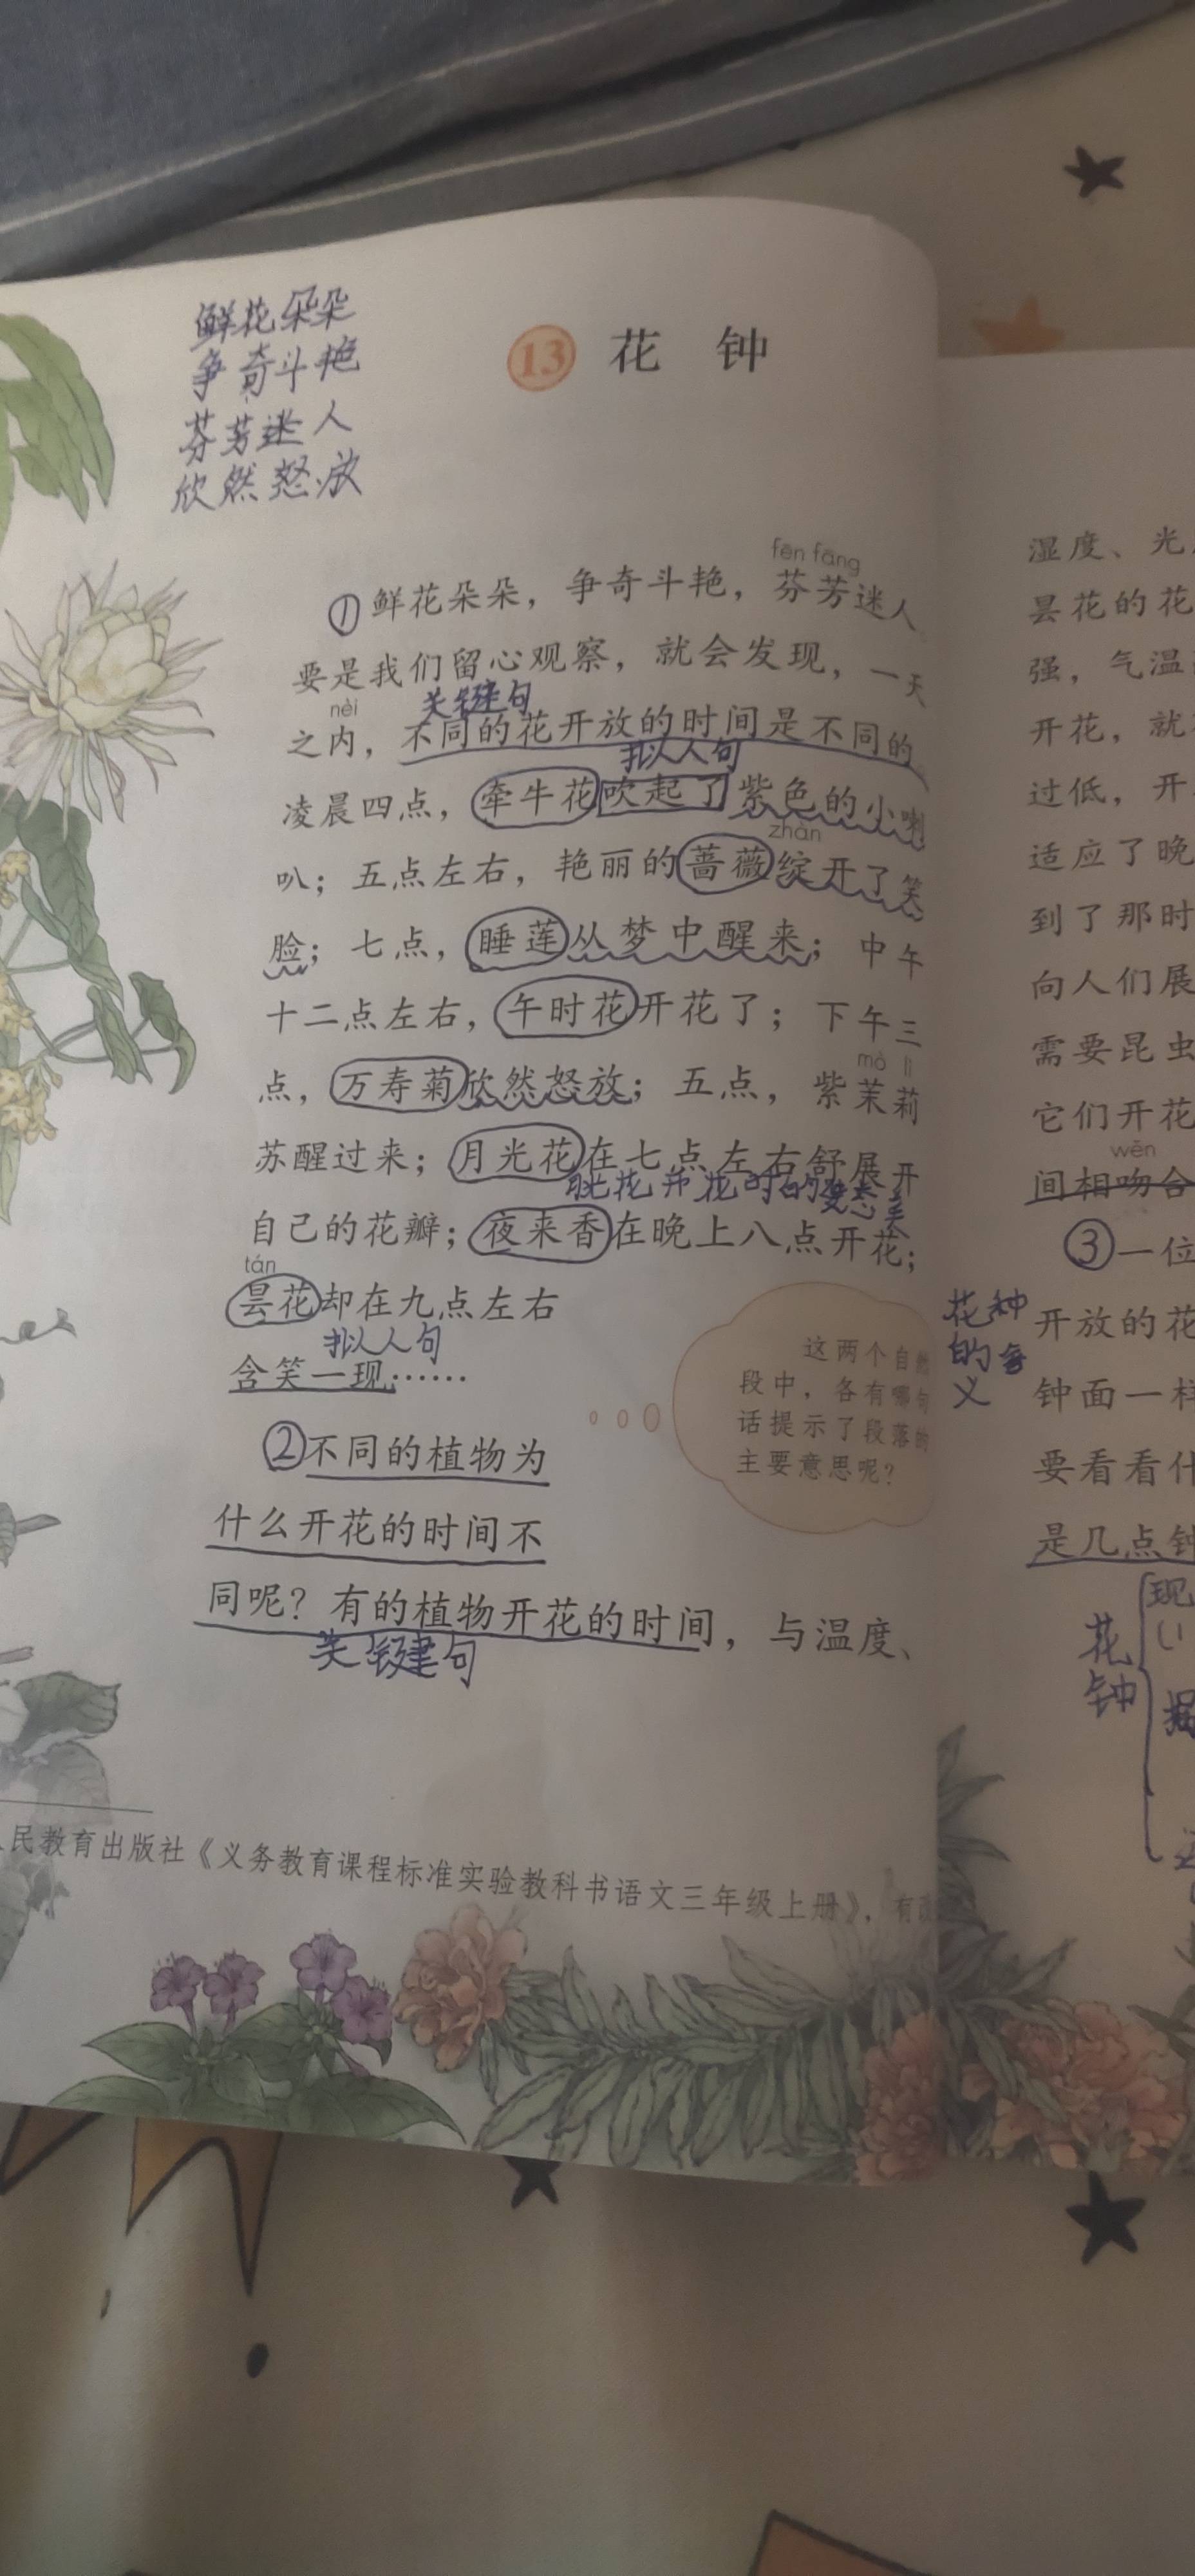 鲜花朵朵
争奇斗艳
芬芳迷人
欣然怒放
13 花钟
fēn fāng
①鲜花朵朵，争奇斗艳，芬芳迷人
要是我们留心观察，就会发现，一天
nèi 关键句
之内，不同的花开放的时间是不同的
拟人句
凌晨四点，牵牛花吹起了紫色的小喇
zhàn
叭；五点左右，艳丽的蔷薇绽开了笑
脸；七点，睡莲从梦中醒来；中午
十二点左右，午时花开花了；下午三
mò lì
点，万寿菊欣然怒放；五点，紫茉莉
苏醒过来；月光花在七点左右舒展开
花开花时的姿态美
自己的花瓣；夜来香在晚上八点开花；
tán
昙花却在九点左右
拟人句
含笑一现……
这两个自然
段中，各有哪句
话提示了段落的
主要意思呢？
②不同的植物为
什么开花的时间不
同呢？有的植物开花的时间，与温度、
关键句
民教育出版社《义务教育课程标准实验教科书语文三年级上册》，有
湿度、光
昙花的花
强，气温
开花，就
过低，开
适应了晚
到了那时
向人们展
需要昆虫
它们开花
wěn
间相吻合
③一位
花钟
的
义
开放的花
钟面一样
要看看什
是几点钟
花
钟
现